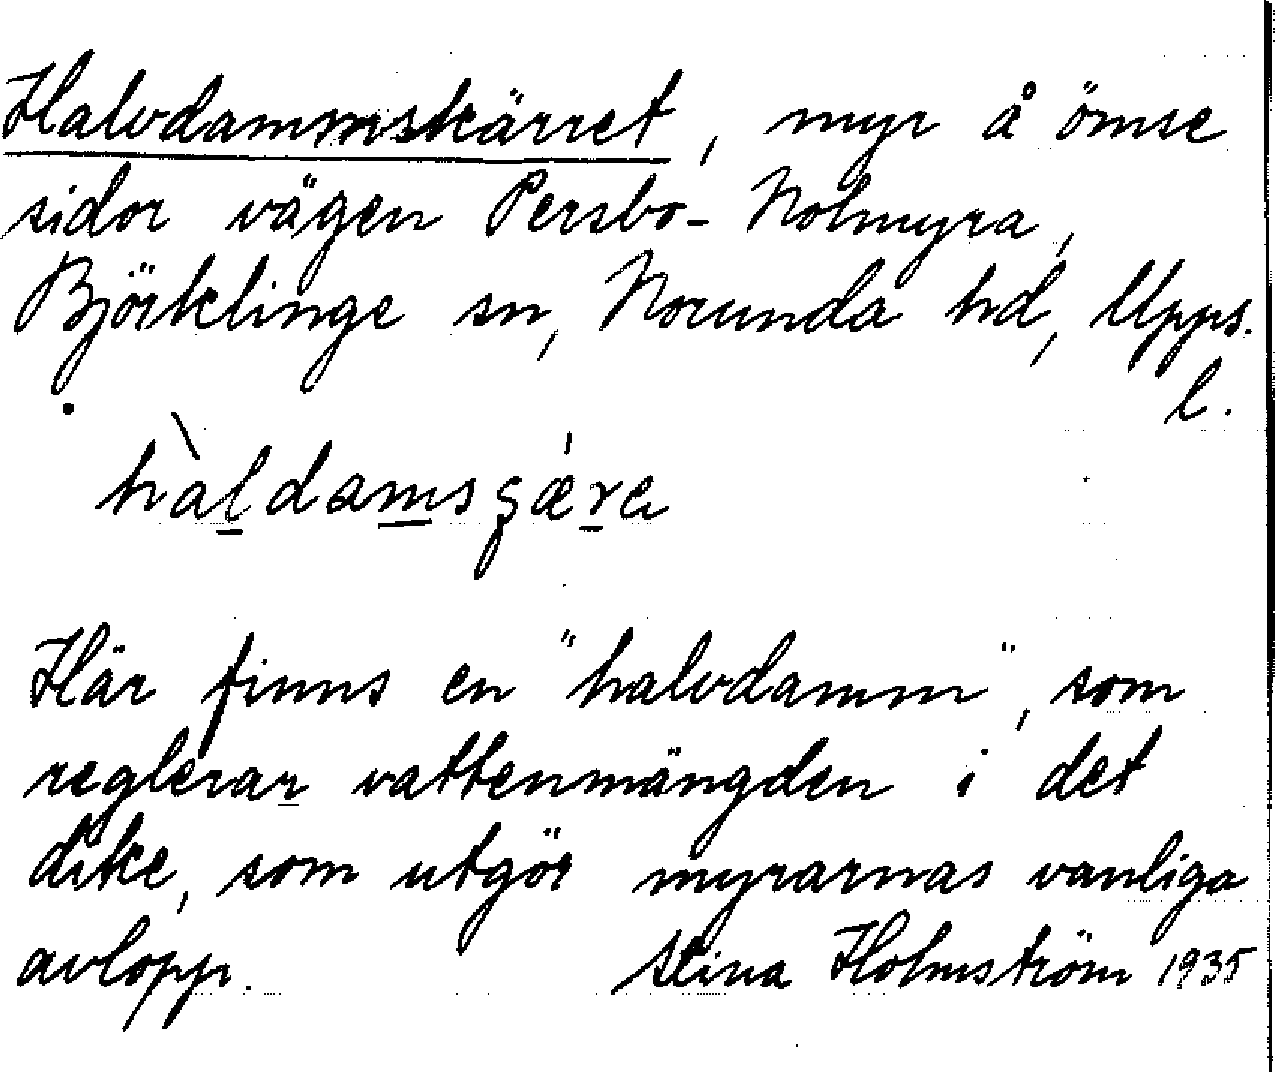 Halvdammskärret, myr å ömse
sidor vägen Persbo - Nolmyra,
Björklinge sn, Norunda hd, Upps.
l.
hàldamsʂæ̀rɐ
Här finns en "halvdamm", som
reglerar vattenmängden i det
dike, som utgör myrarnas vanliga
avlopp. Stina Holmström 1935